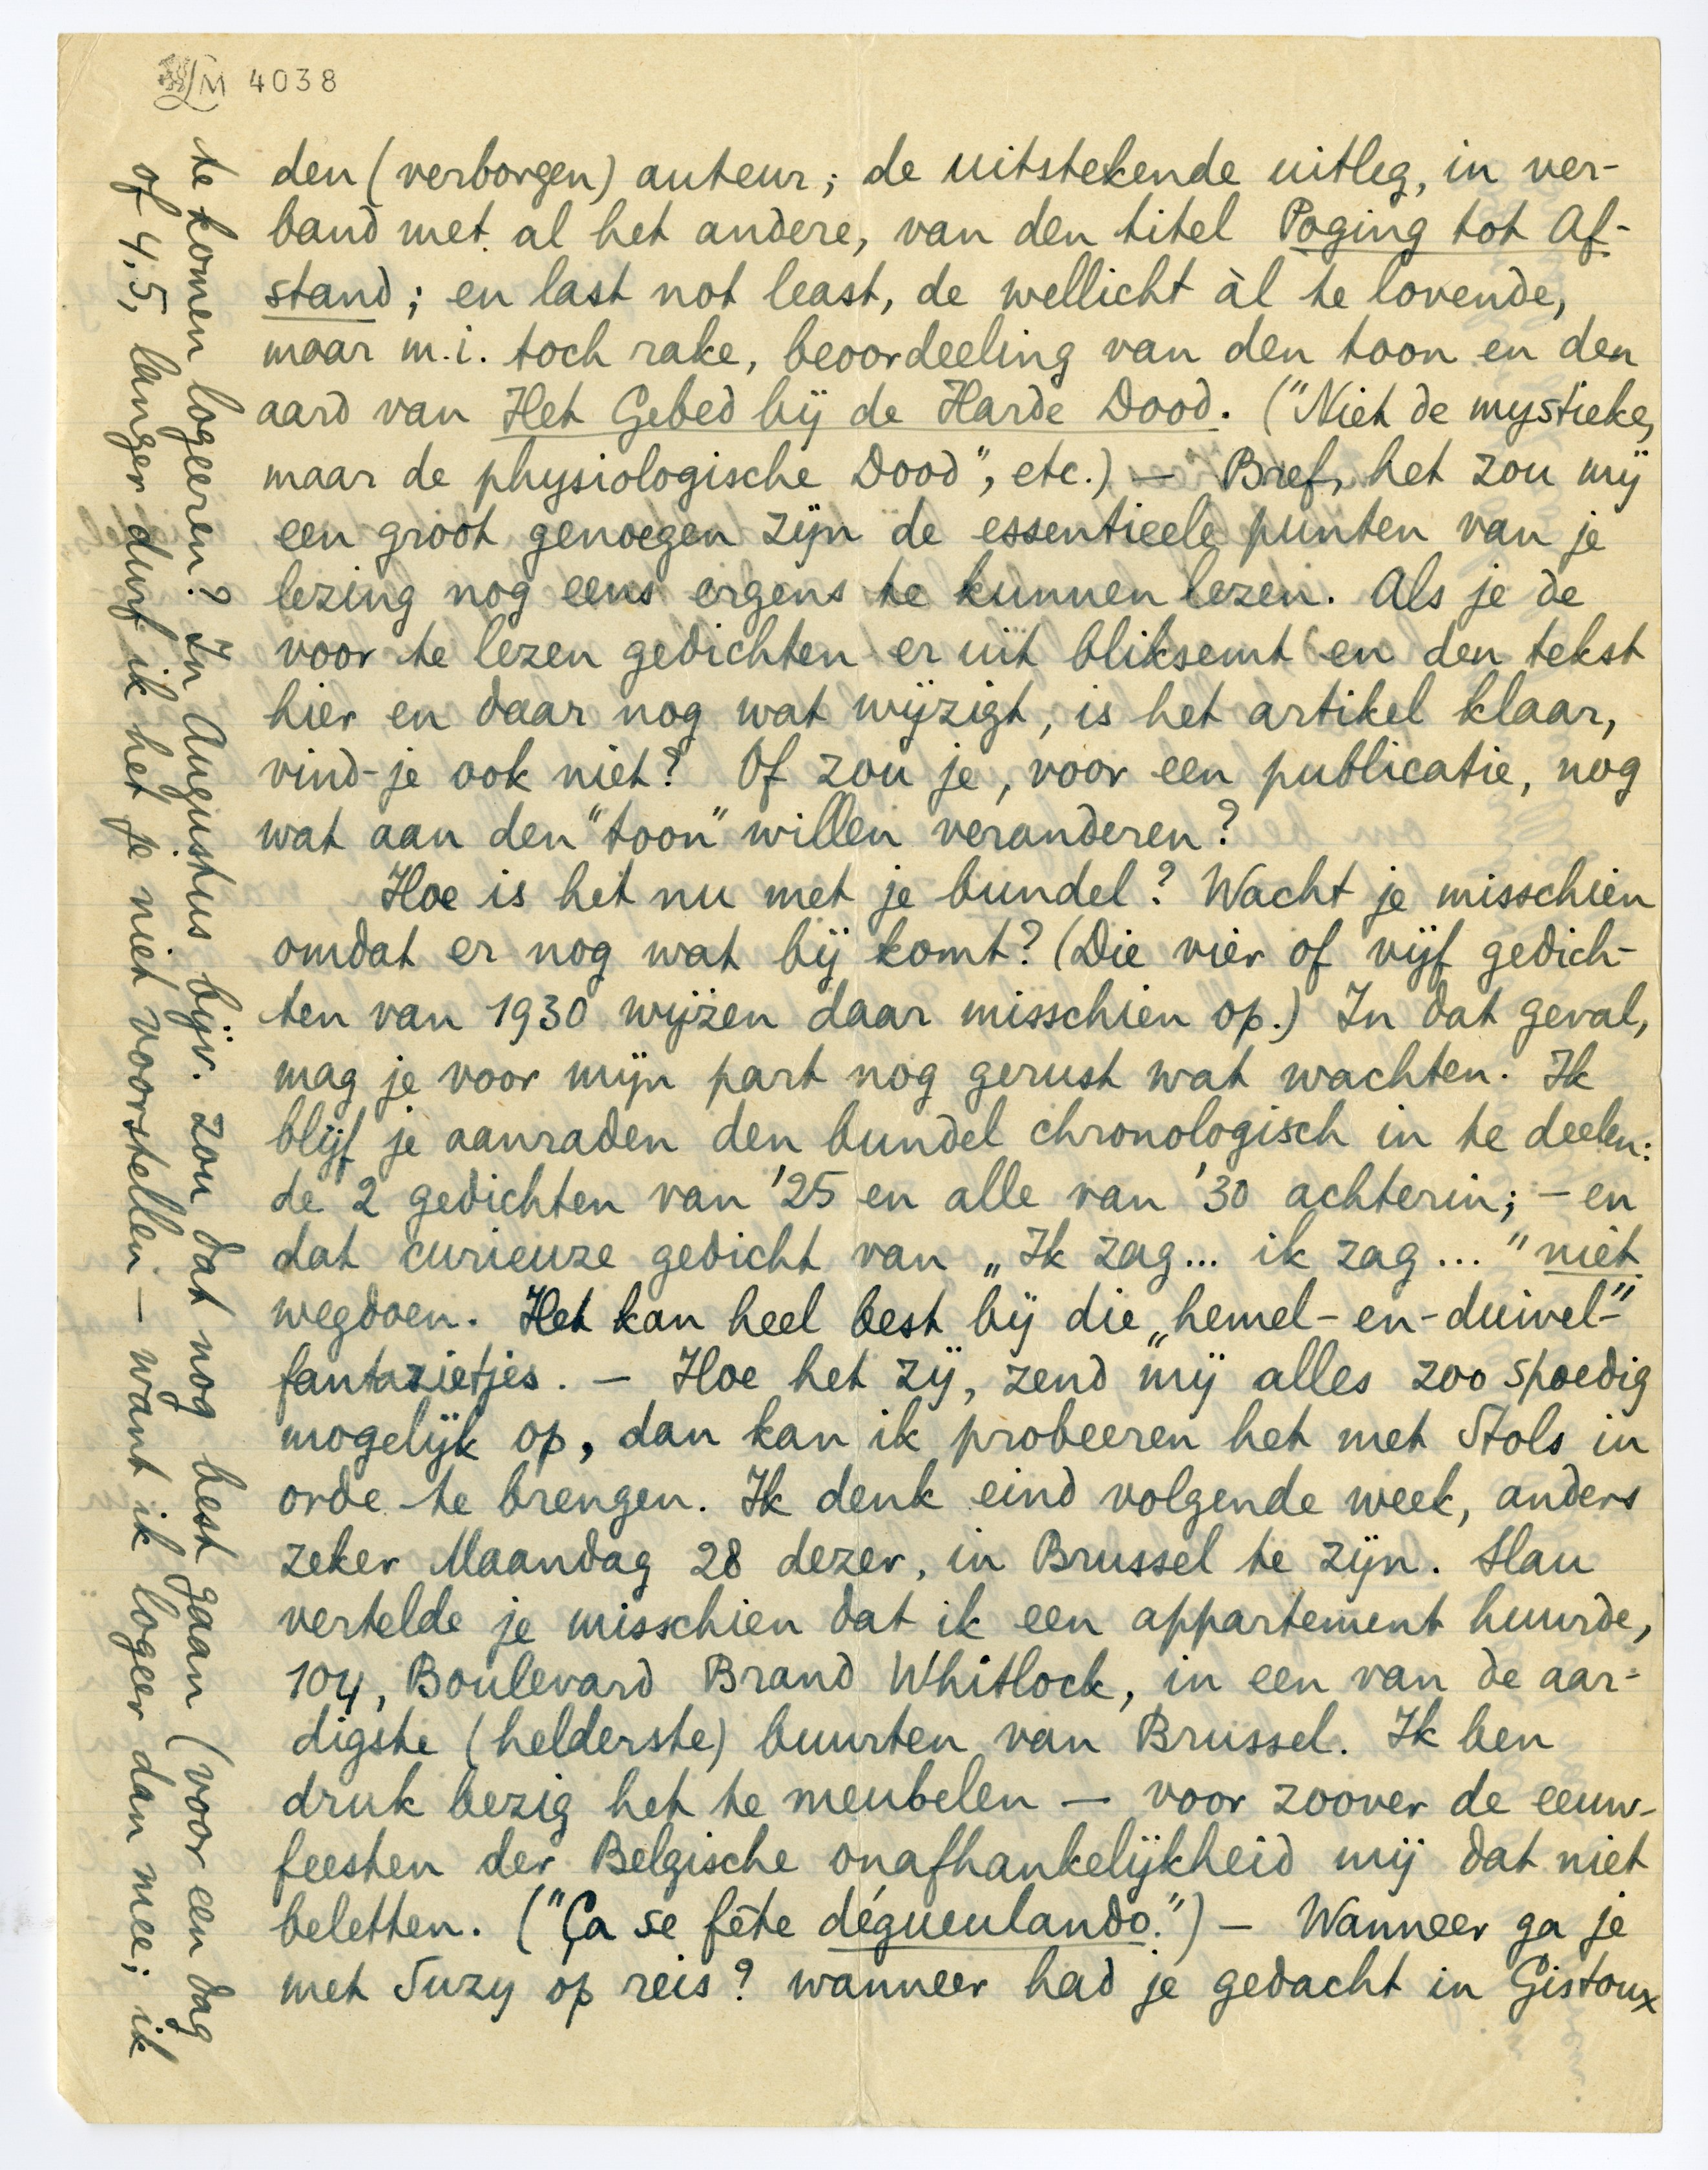 LM 4038
den (verborgen) auteur; de uitstekende uitleg, in ver-
band met al het andere, van den titel Poging tot Af-
stand; en last not least, de wellicht àl te lovende,
maar m.i. toch rake, beoordeeling van den toon en den
aard van Het Gebed bij de Harde Dood. ("Niet de mystieke,
maar de physiologische Dood", etc.) — Bref, het zou mij
een groot genoegen zijn de essentieele punten van je
lezing nog eens ergens te kunnen lezen. Als je de
voor te lezen gedichten er uit bliksemt en den tekst
hier en daar nog wat wijzigt, is het artikel klaar,
vind-je ook niet? Of zou je, voor een publicatie, nog
wat aan den "toon" willen veranderen?
Hoe is het nu met je bundel? Wacht je misschien
omdat er nog wat bij komt? (Die vier of vijf gedich-
ten van 1930 wijzen daar misschien op.) In dat geval,
mag je voor mijn part nog gerust wat wachten. Ik
blijf je aanraden den bundel chronologisch in te deelen:
de 2 gedichten van '25 en alle van '30 achterin; — en
dat curieuze gedicht van „Ik zag... ik zag..." niet
wegdoen. Het kan heel best bij die „hemel-en-duivel-"
fantazietjes. — Hoe het zij, zend mij alles zoo spoedig
mogelijk op, dan kan ik probeeren het met Stols in
orde te brengen. Ik denk eind volgende week, anders
zeker Maandag 28 dezer, in Brussel te zijn. Slau
vertelde je misschien dat ik een appartement huurde,
104, Boulevard Brand Whitlock, in een van de aar-
digste (helderste) buurten van Brussel. Ik ben
druk bezig het te meubelen — voor zoover de eeuw-
feesten der Belgische onafhankelijkheid mij dat niet
beletten. ("Ça se fête dégueulando.") — Wanneer ga je
met Suzy op reis? wanneer had je gedacht in Gistoux
te komen logeeren? In Augustus bijv. zou dat nog best gaan (voor een dag
of 4, 5, langer durf ik het je niet voorstellen — want ik logeer dan mee; ik